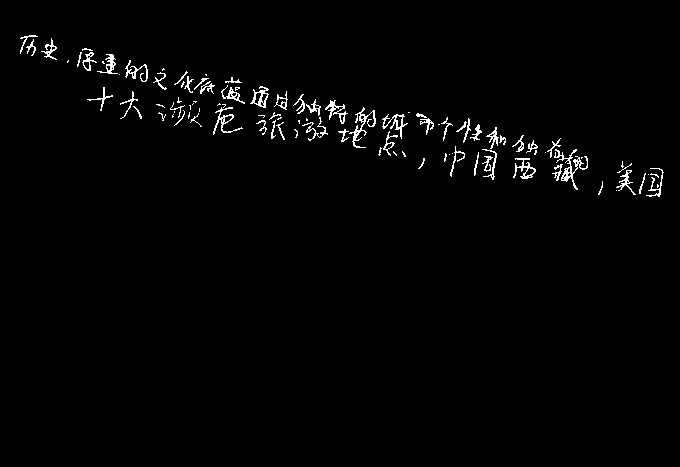 历史，厚重的文化底蕴通过独特的城市个性和独有的
十大濒危旅游地点，中国西藏，美国